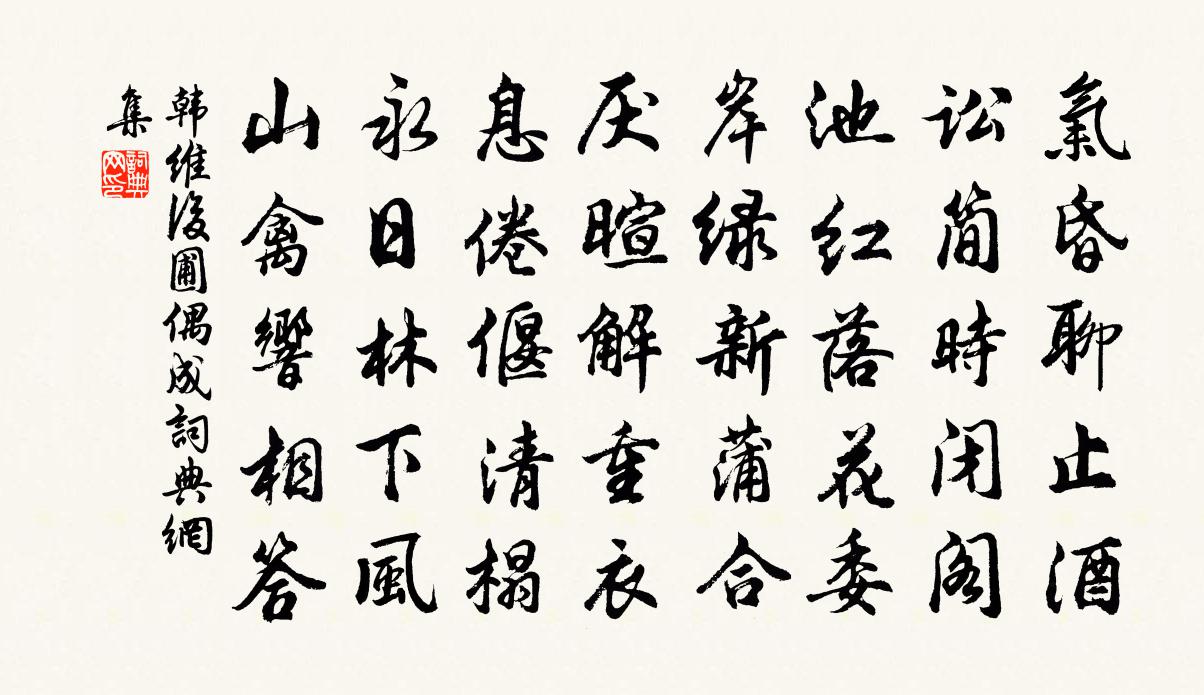 氣昏聊止酒
訟简時闭阁
池红落花委
岸绿新蒲合
厌暄解重衣
息倦偃清榻
永日林下風
山禽響相答
韩維後圃偶成詞典網
集
詞典
网印